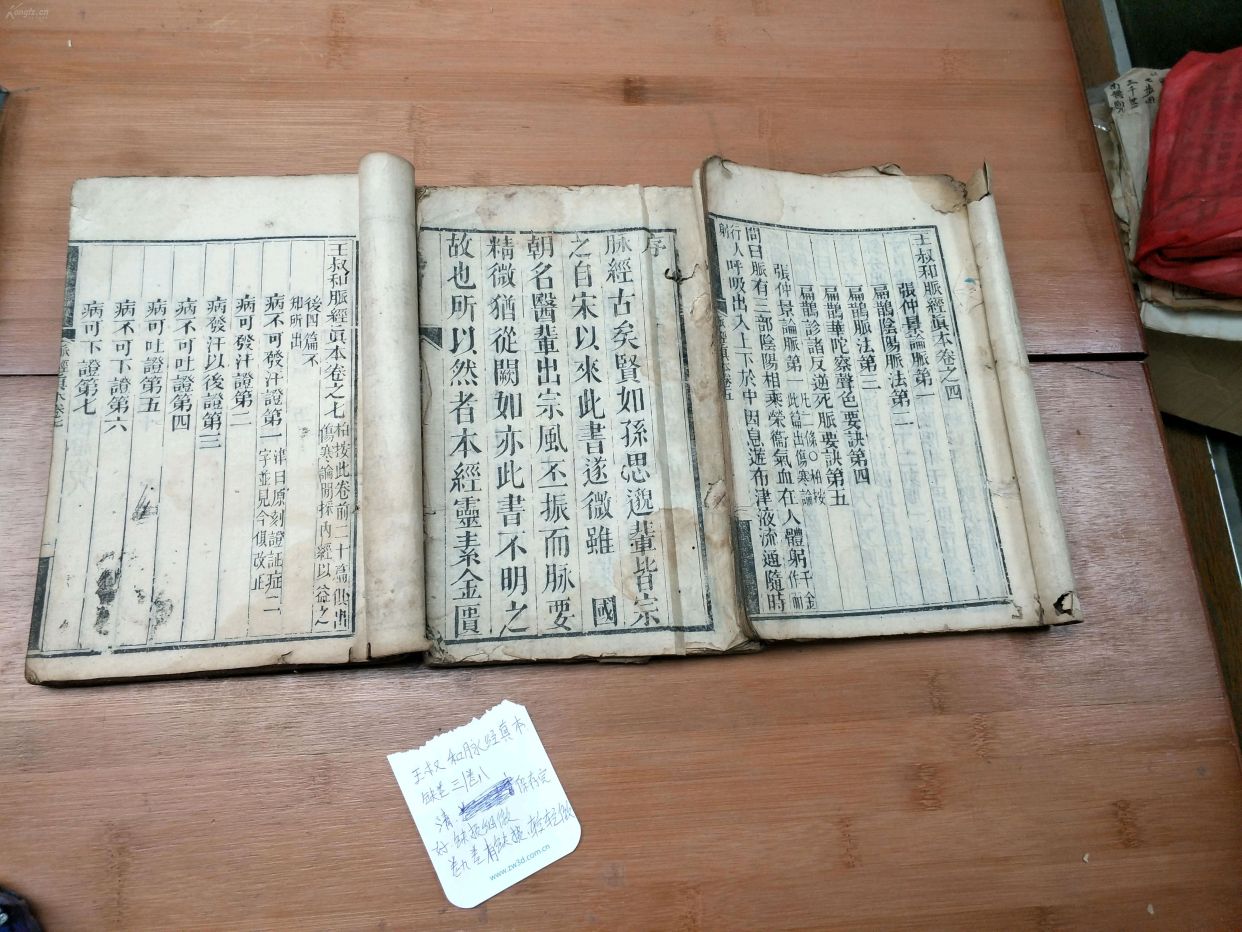 王叔和脈經真本卷之四
張仲景論脈第一
扁鵲陰陽脈法第二
扁鵲脈法第三
扁鵲華陀察聲色要訣第四
扁鵲診諸反逆死脈要訣第五
張仲景論脈第一 此篇出傷寒論
問曰脈有三部陰陽相乘榮衞氣血在人體躬 千金作而
行人呼吸出入上下於中因息遊布津液流通隨時
序
脈經古矣賢如孫思邈輩皆宗
之自宋以來此書遂微雖 國
朝名醫輩出宗風丕振而脈要
精微猶從闕如亦此書不明之
故也所以然者本經靈素金匱
王叔和脈經真本卷之七 柏按此卷前二十篇俱出
傷寒論間採內經以益之
後四篇不
知所出
病不可發汗證第一
病可發汗證第二
病發汗以後證第三
病不可吐證第四
病可吐證第五
病不可下證第六
病可下證第七
王叔和脉经真本
缺卷三卷八
清 保存完
好
www.zw3d.com.cn
Kongfz.cn